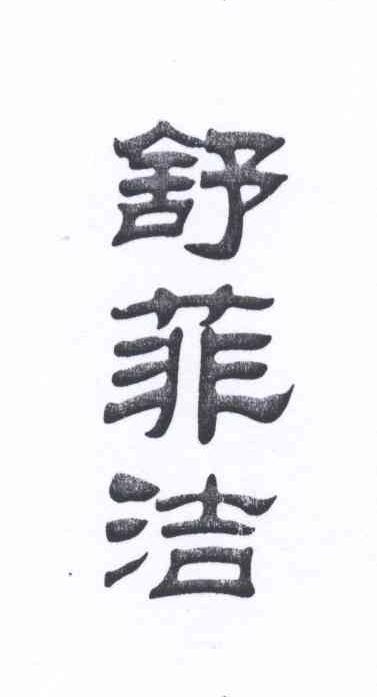 舒菲洁